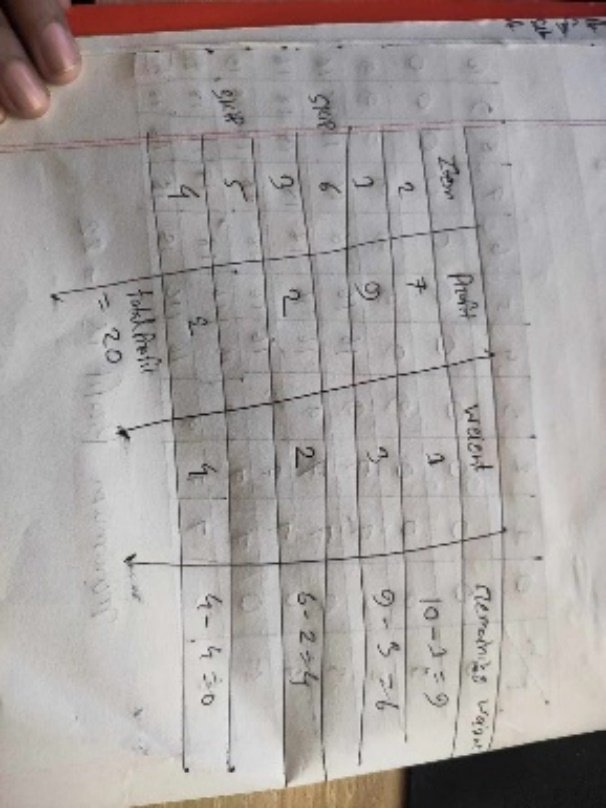 Item Profit Weight Remaining Weight
2 7 1 10-1=9
1 9 3 9-3=6
Skip 6
3 2 2 6-2=4
Skip 5
4 2 4 4-4=0
total Profit
= 20